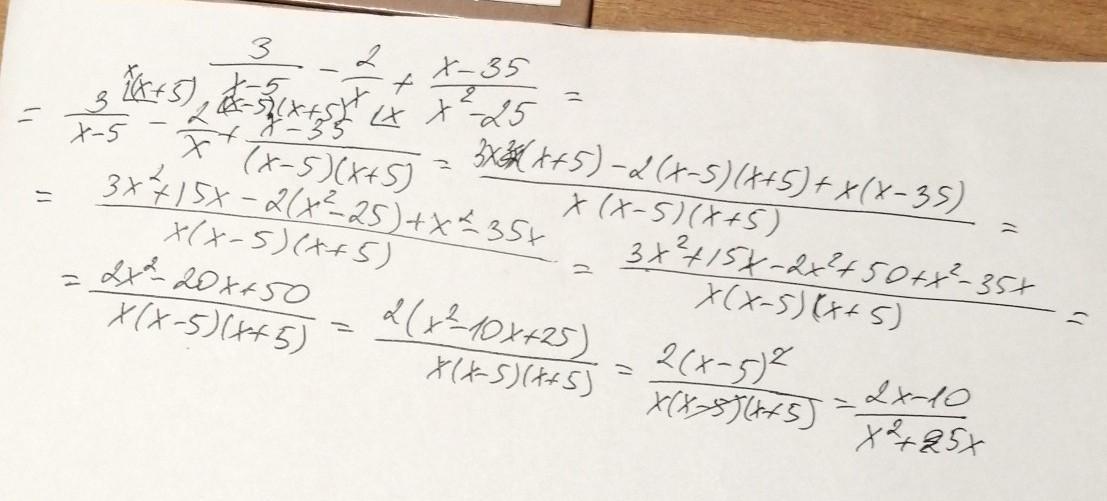 3/(x-5) - 2/x + (x-35)/(x²-25) =
= 3/(x-5) - 2/x + (x-35)/((x-5)(x+5)) = (3x(x+5)-2(x-5)(x+5)+x(x-35))/(x(x-5)(x+5)) =
= (3x²+15x-2(x²-25)+x²-35x)/(x(x-5)(x+5)) = (3x²+15x-2x²+50+x²-35x)/(x(x-5)(x+5)) =
= (2x²-20x+50)/(x(x-5)(x+5)) = 2(x²-10x+25)/(x(x-5)(x+5)) = 2(x-5)²/(x(x-5)(x+5)) = (2x-10)/(x²+5x)